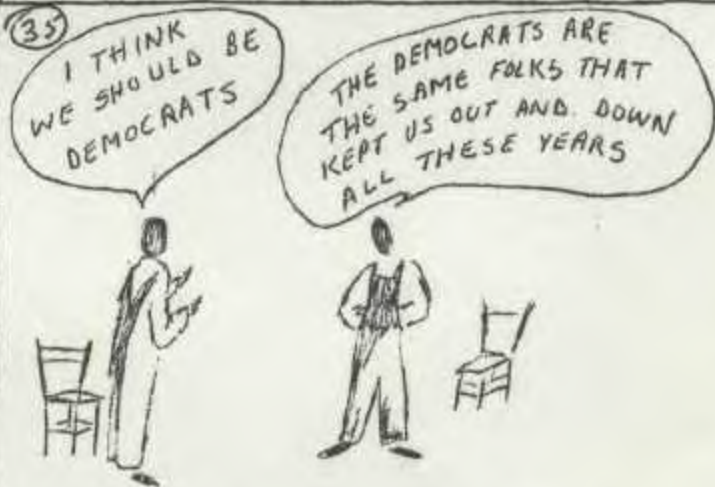 35
I THINK
WE SHOULD BE
DEMOCRATS
THE DEMOCRATS ARE
THE SAME FOLKS THAT
KEPT US OUT AND. DOWN
ALL THESE YEARS